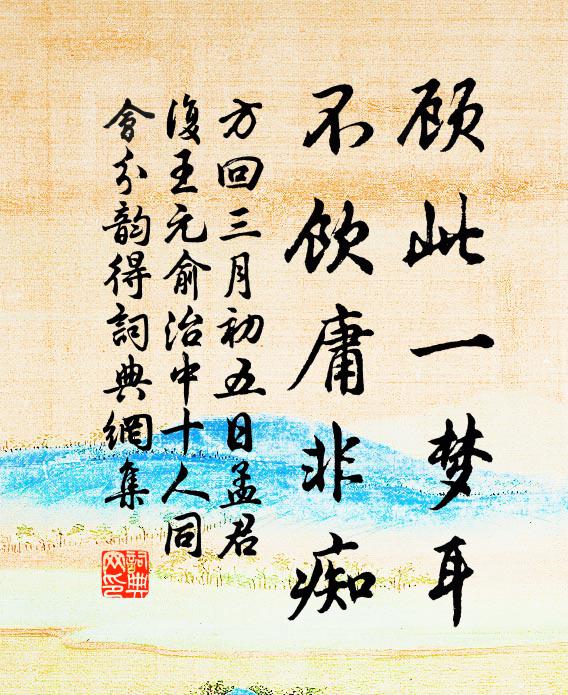 顾此一梦耳
不饮庸非痴
方回三月初五日孟君
復王元俞治中十人同
會分韵得詞典網集
詞典